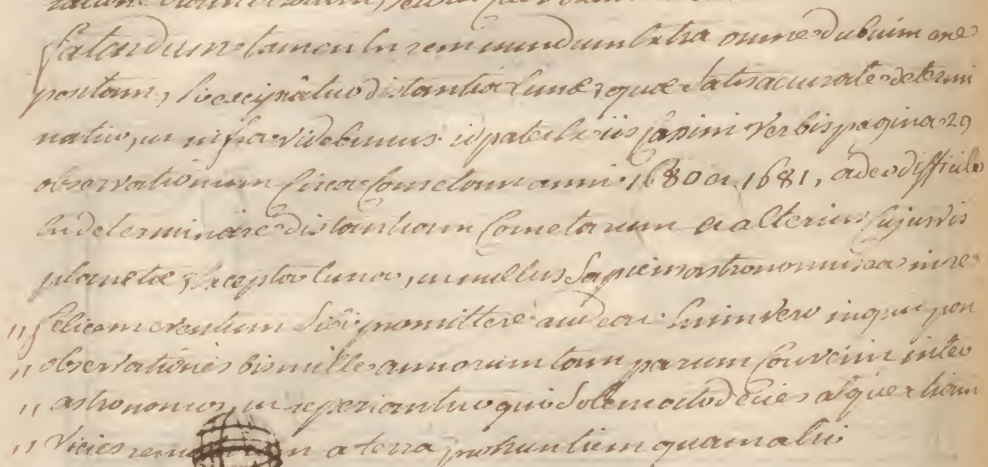 fatendum tamen hu rem nundum Extra omne dubium esse
positam, si excipiatur distantia Lunæ, quæ satis accurate determi
natur, ut infra videbimus id patet ex iis Casini verbis pagina 29
observationum Circa Cometam anni 1680 et 1681, adeo difficile
Est determinare distantiam Cometarum et alterius Cujusvis
planetæ, Excepta luna, ut nullus Sapiens astronomus ea in re
,, felicem eventum sibi promittere audeat Enimvero inquit post
,, observationes bis mille annorum tam parum Convenit inter
,, astronomos, ut reperiantur qui Solem octodecies atque etiam
,, Vicies a terra pronuntient quam alii